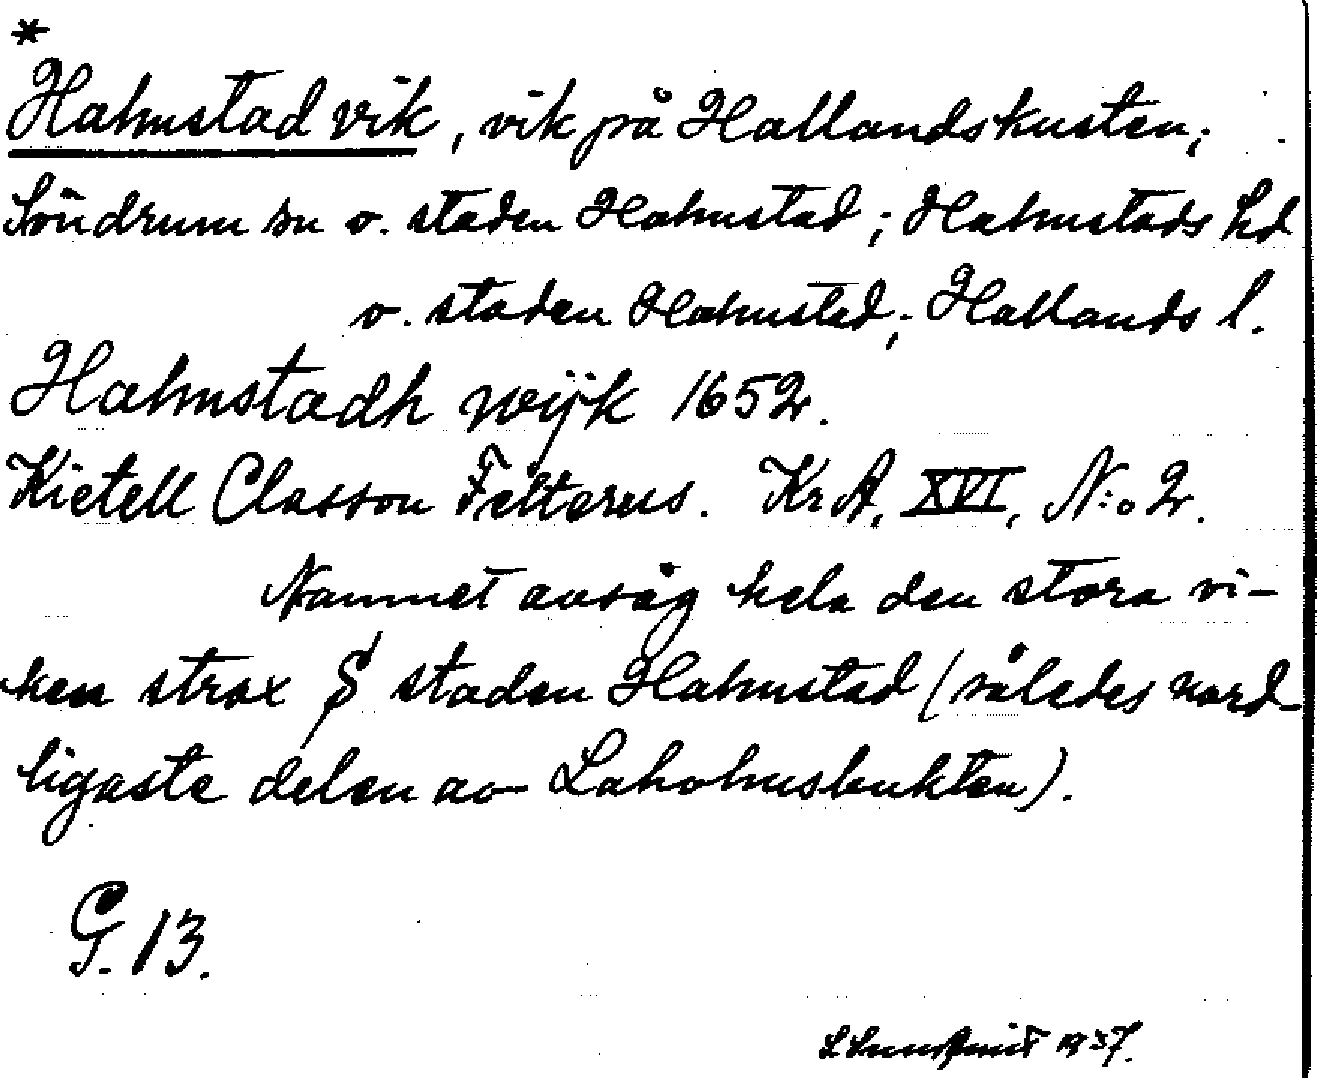 *
Halmstad vik, vik på Hallandskusten;
Söndrum sn o. staden Halmstad; Halmstads hd
o. staden Halmstad; Hallands l.
Halmstadh wijk 1652.
Kietell Classon Felterus. KrA, XVI, N:o 2.
Namnet avsåg hela den stora vi-
ken strax S staden Halmstad (således nord
ligaste delen av Laholmsbukten).
G. 13.
1937.